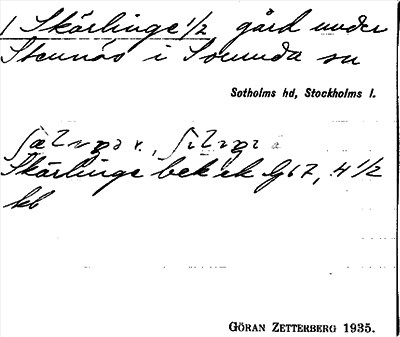 1 Skärlinge 1/2 gård under
Stennäs i Sorunda sn
Sotholms hd, Stockholms l.
Skärlinge bek ek G67, H 1/2
kb
GÖRAN ZETTERBERG 1935.